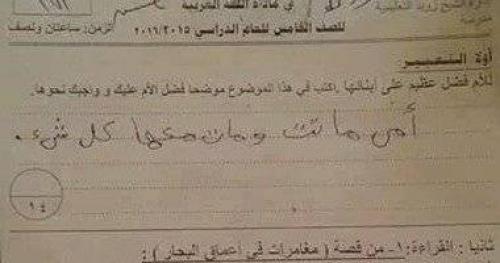 في مادة اللغة العربية
للصف الخامس للعام الدراسي ٢٠١٦/٢٠١٥
الزمن: ساعتان ونصف
أولا: التعبير
للأم فضل عظيم على أبنائها. اكتب في هذا الموضوع موضحا فضل الأم عليك وواجبك نحوها.
أمي ماتت ومات معها كل شيء.
١٤
ثانيا: القراءة: ١- من قصة ( مغامرات في أعماق البحار ):